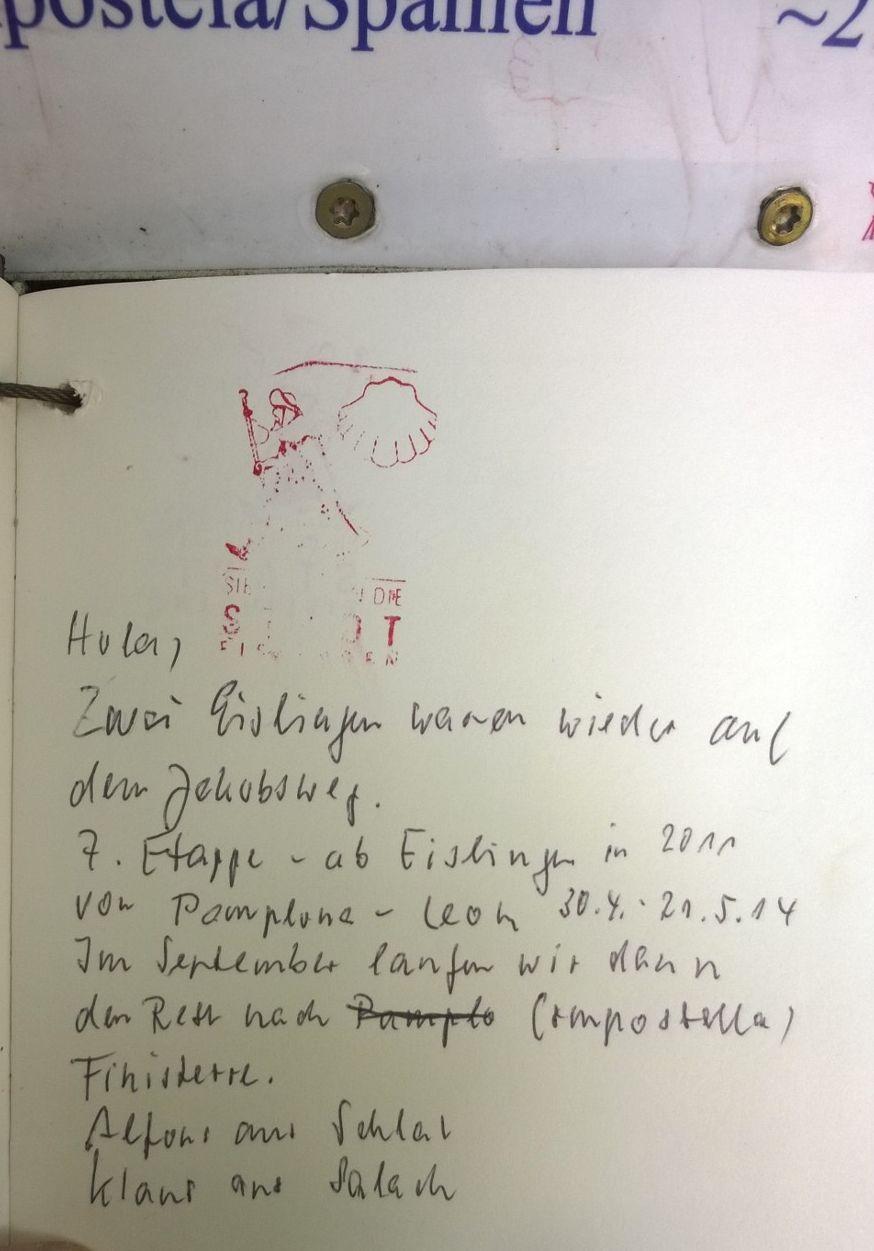 postela/Spanien ~2
DIE
S T
Hola,
Zwei Eislinger waren wieder auf
dem Jakobsweg.
7. Etappe - ab Eislingen in 2011
von Pamplona - Leon 30.4.-21.5.14
Im September laufen wir dann
den Rest nach Pamplo (Compostella)
Finisterre.
Alfons aus Schlat
Klaus aus Salach